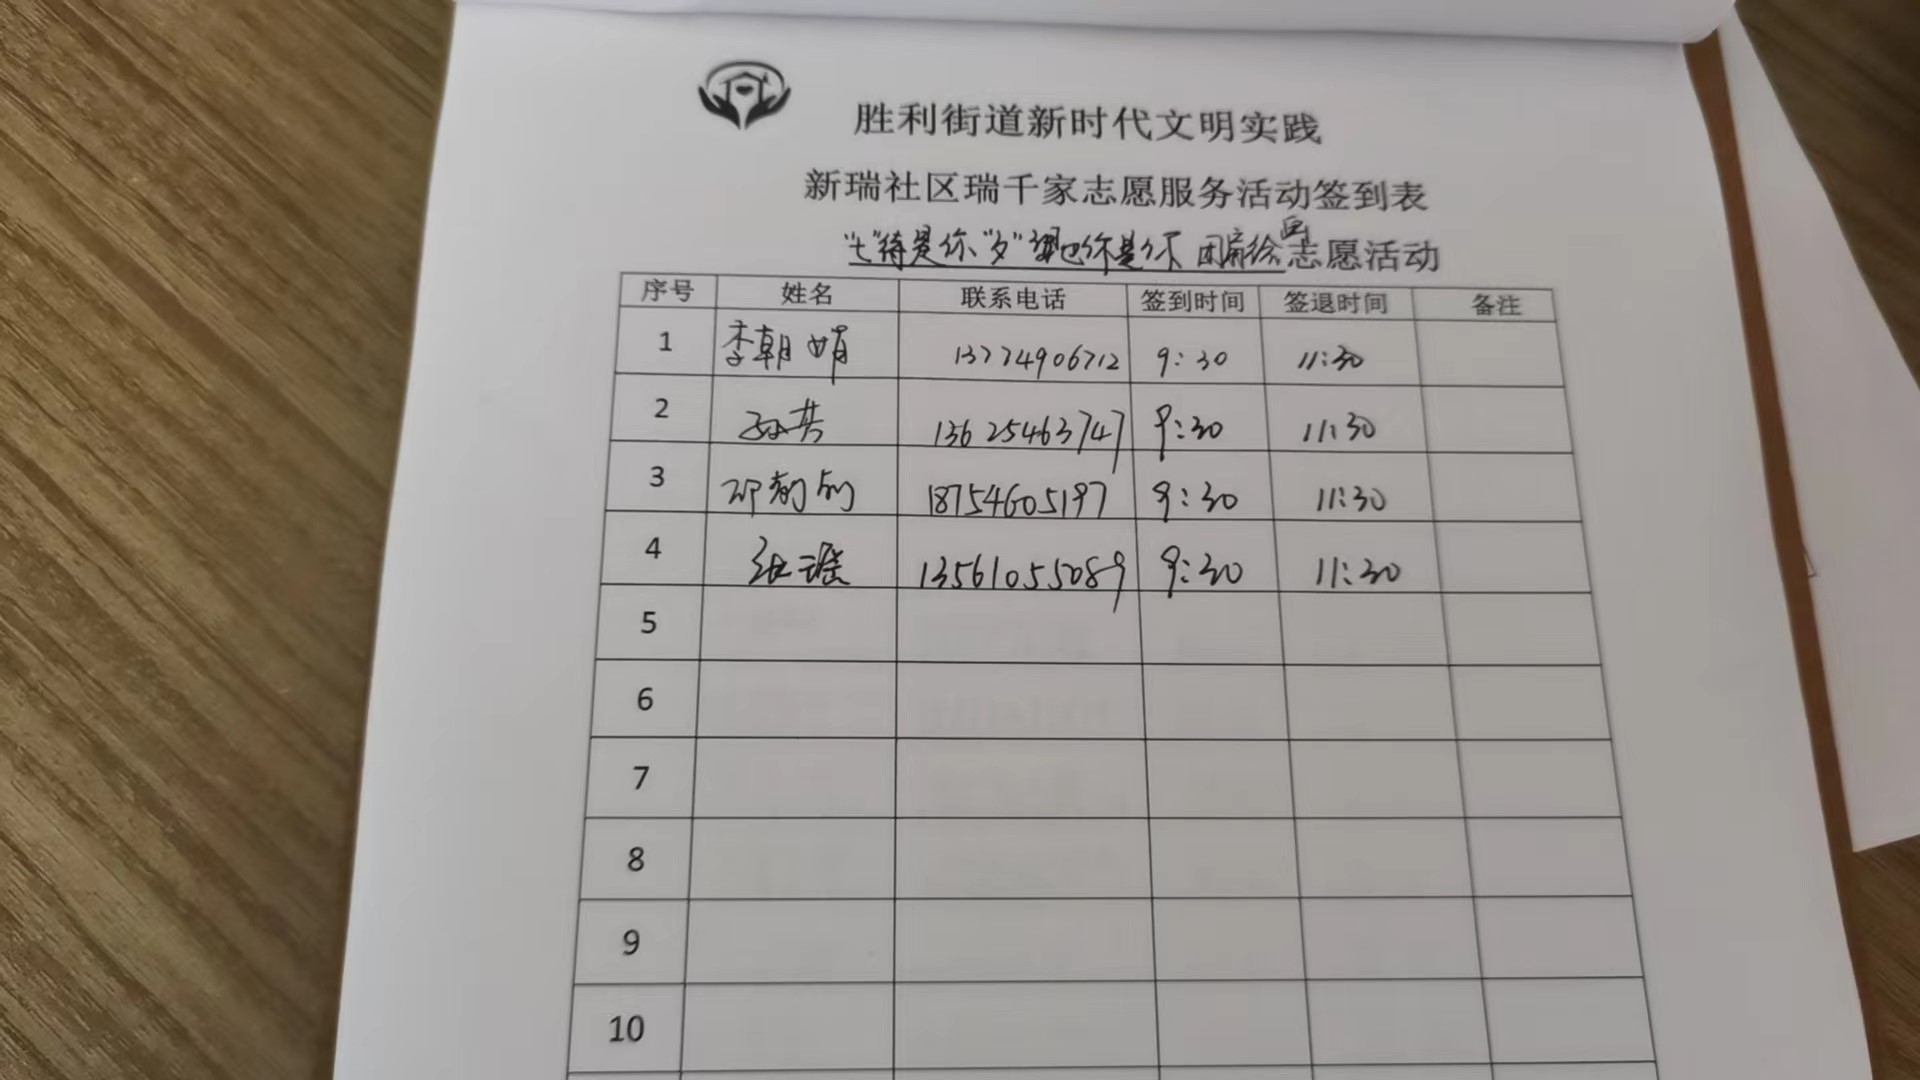 胜利街道新时代文明实践
新瑞社区瑞千家志愿服务活动签到表
"七"待是你"夕"望也你是 团扇绘画志愿活动
序号 姓名 联系电话 签到时间 签退时间 备注
1 李朝娟 13774906712 9:30 11:30
2 孙芸 13625463747 9:30 11:30
3 邓 18754605197 9:30 11:30
4 张瑶 13561055089 9:30 11:30
5
6
7
8
9
10